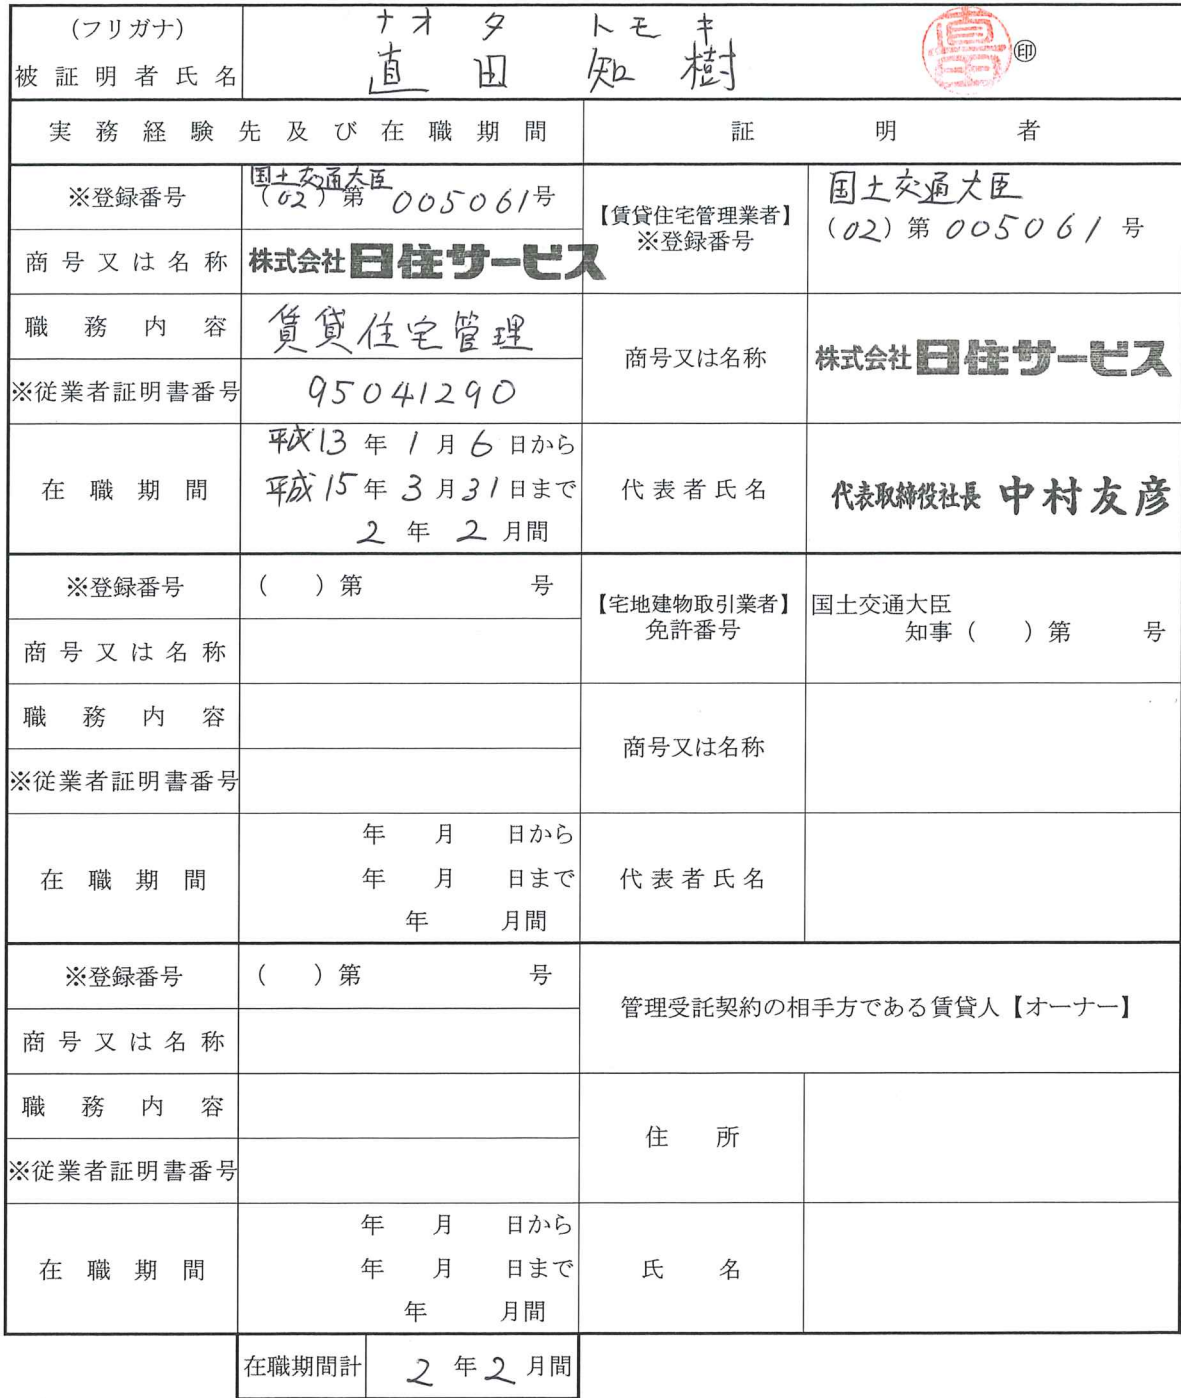 (フリガナ) ナオタ トモキ
被証明者氏名 直田 知樹 ㊞
実務経験先及び在職期間 証明者
※登録番号 国土交通大臣
(02)第005061号
【賃貸住宅管理業者】
※登録番号
国土交通大臣
(02)第005061号
商号又は名称 株式会社日住サービス
職務内容 賃貸住宅管理
商号又は名称 株式会社日住サービス
※従業者証明書番号 95041290
在職期間
平成13年1月6日から
平成15年3月31日まで
2年2月間
代表者氏名 代表取締役社長 中村友彦
※登録番号 ( )第 号
【宅地建物取引業者】
免許番号
国土交通大臣
知事( )第 号
商号又は名称
職務内容
商号又は名称
※従業者証明書番号
在職期間
年 月 日から
年 月 日まで
年 月間
代表者氏名
※登録番号 ( )第 号
管理受託契約の相手方である賃貸人【オーナー】
商号又は名称
職務内容
住所
※従業者証明書番号
在職期間
年 月 日から
年 月 日まで
年 月間
氏名
在職期間計 2年2月間